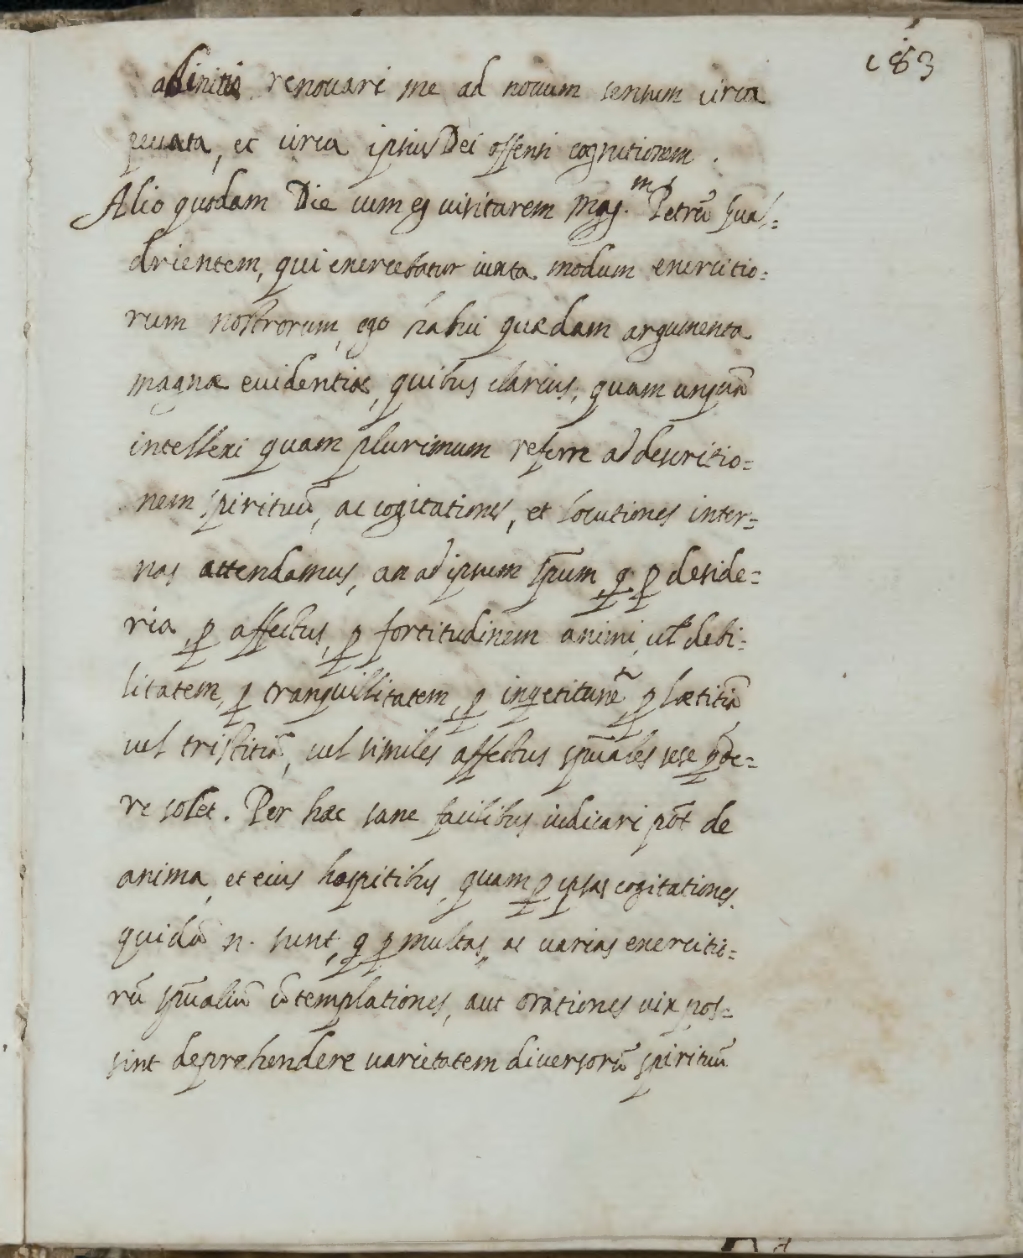 183
ab initio renouari me ad nouum sensum circa
peccata, et circa ipsius Dei offensi cognitionem.
Alio quodam Die cum eg uisitarem Mag.m Petrū
drientem, qui exercebatur iuxta modum exercitio=
rum nostrorum, ego habui quædam argumenta
magnæ euidentiæ, quibus clarius, quam unquā
intellexi quam plurimum referre ad descritio=
nem spirituū, ac cogitationes, et locutiones inter=
nas attendamus, an ad ipsum spūm, q̄ ꝑ deside=
ria, ꝑ affectus, ꝑ fortitudinem animi, ul̄ debi=
litatem, ꝑ tranquillitatem, ꝑ inquietitudinē ꝑ lætitiā
uel tristitiā, uel similes affectus spūales sese ꝓde=
re solet. Per hæc sane facilibus iudicari pōt de
anima, et eius hospitibus, quam ꝑ ipsas cogitationes.
quidā n. sunt, q̄ ꝑ multas, ac uarias exercitio=
rū spūaliū cōtemplationes, aut orationes uix pos=
sint deprehendere uarietatem diuersorū spirituū